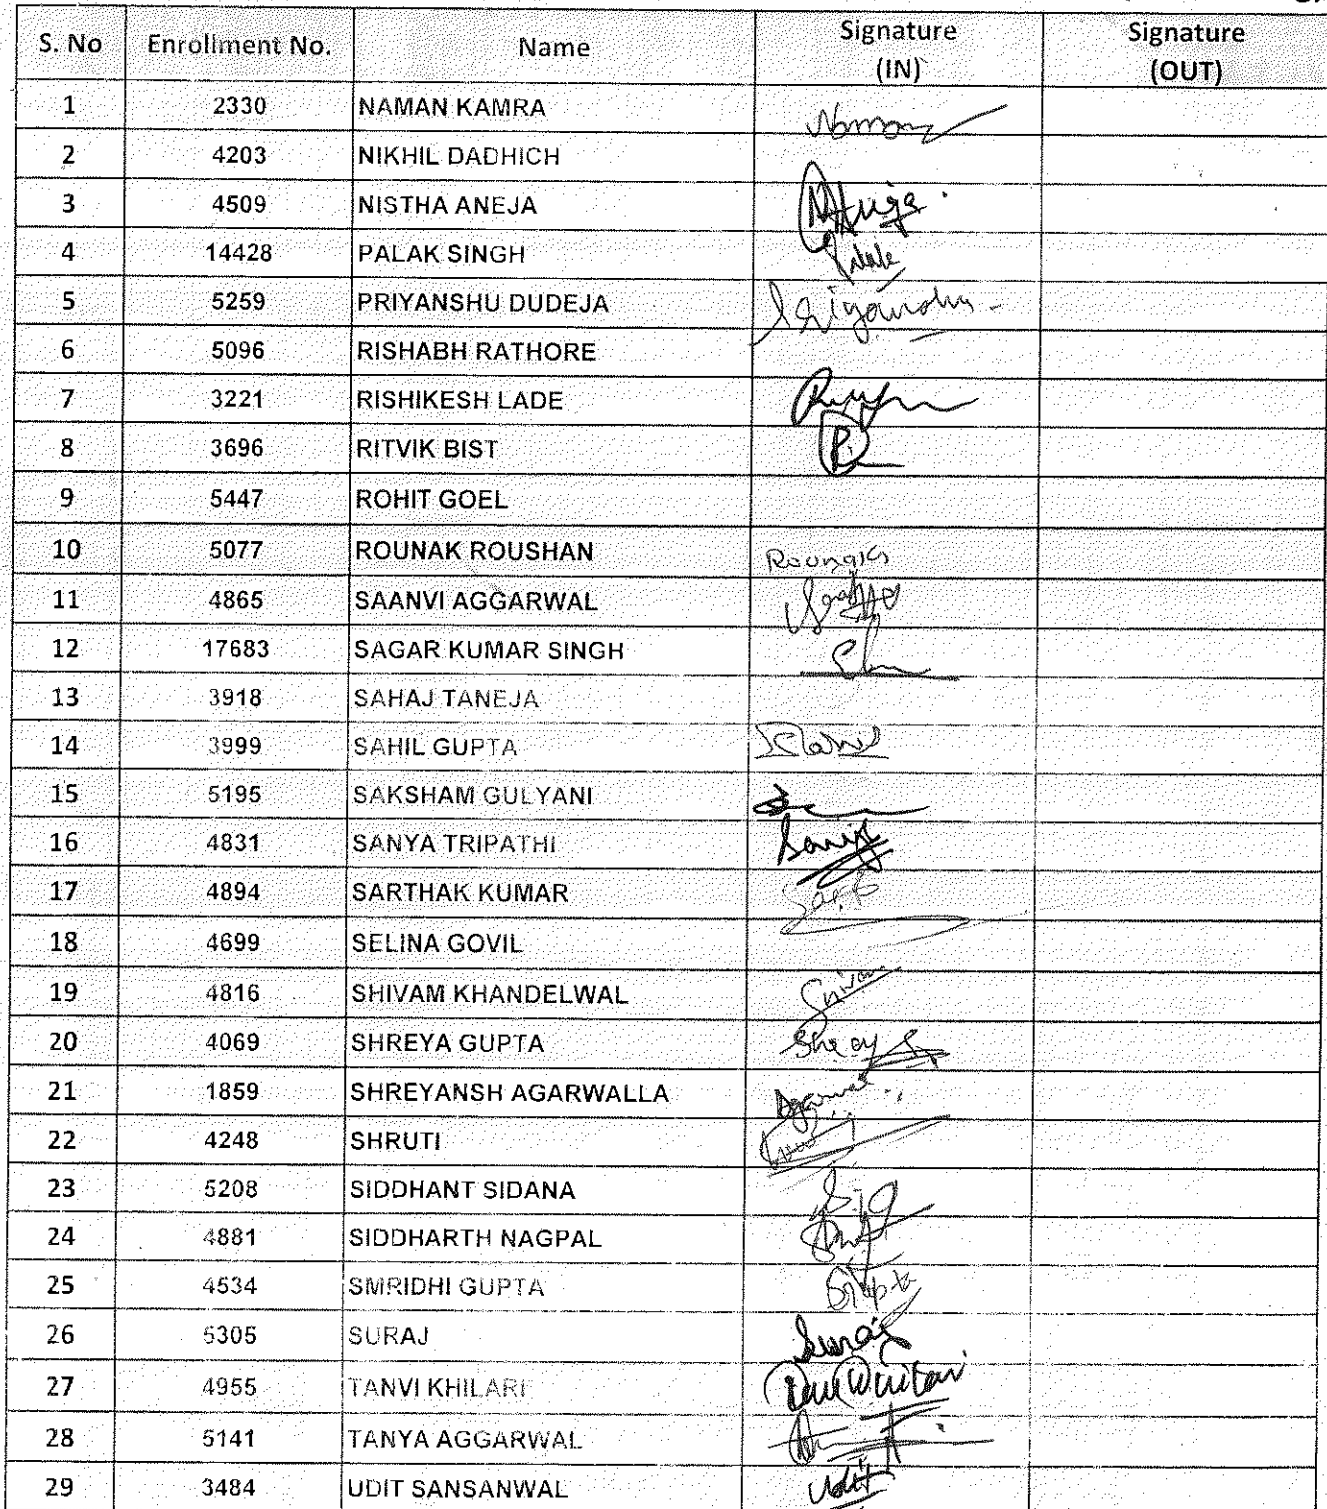 S. No Enrollment No. Name Signature (IN) Signature (OUT)
1 2330 NAMAN KAMRA Naman
2 4203 NIKHIL DADHICH
3 4509 NISTHA ANEJA
4 14428 PALAK SINGH Palak
5 5259 PRIYANSHU DUDEJA Priyanshu
6 5096 RISHABH RATHORE
7 3221 RISHIKESH LADE
8 3696 RITVIK BIST
9 5447 ROHIT GOEL
10 5077 ROUNAK ROUSHAN Rounak
11 4865 SAANVI AGGARWAL
12 17683 SAGAR KUMAR SINGH
13 3918 SAHAJ TANEJA
14 3999 SAHIL GUPTA
15 5195 SAKSHAM GULYANI
16 4831 SANYA TRIPATHI Sanya
17 4894 SARTHAK KUMAR
18 4699 SELINA GOVIL
19 4816 SHIVAM KHANDELWAL Shivam
20 4069 SHREYA GUPTA
21 1859 SHREYANSH AGARWALLA
22 4248 SHRUTI
23 5208 SIDDHANT SIDANA
24 4881 SIDDHARTH NAGPAL
25 4534 SMRIDHI GUPTA
26 5305 SURAJ Suraj
27 4955 TANVI KHILARI
28 5141 TANYA AGGARWAL
29 3484 UDIT SANSANWAL Udit